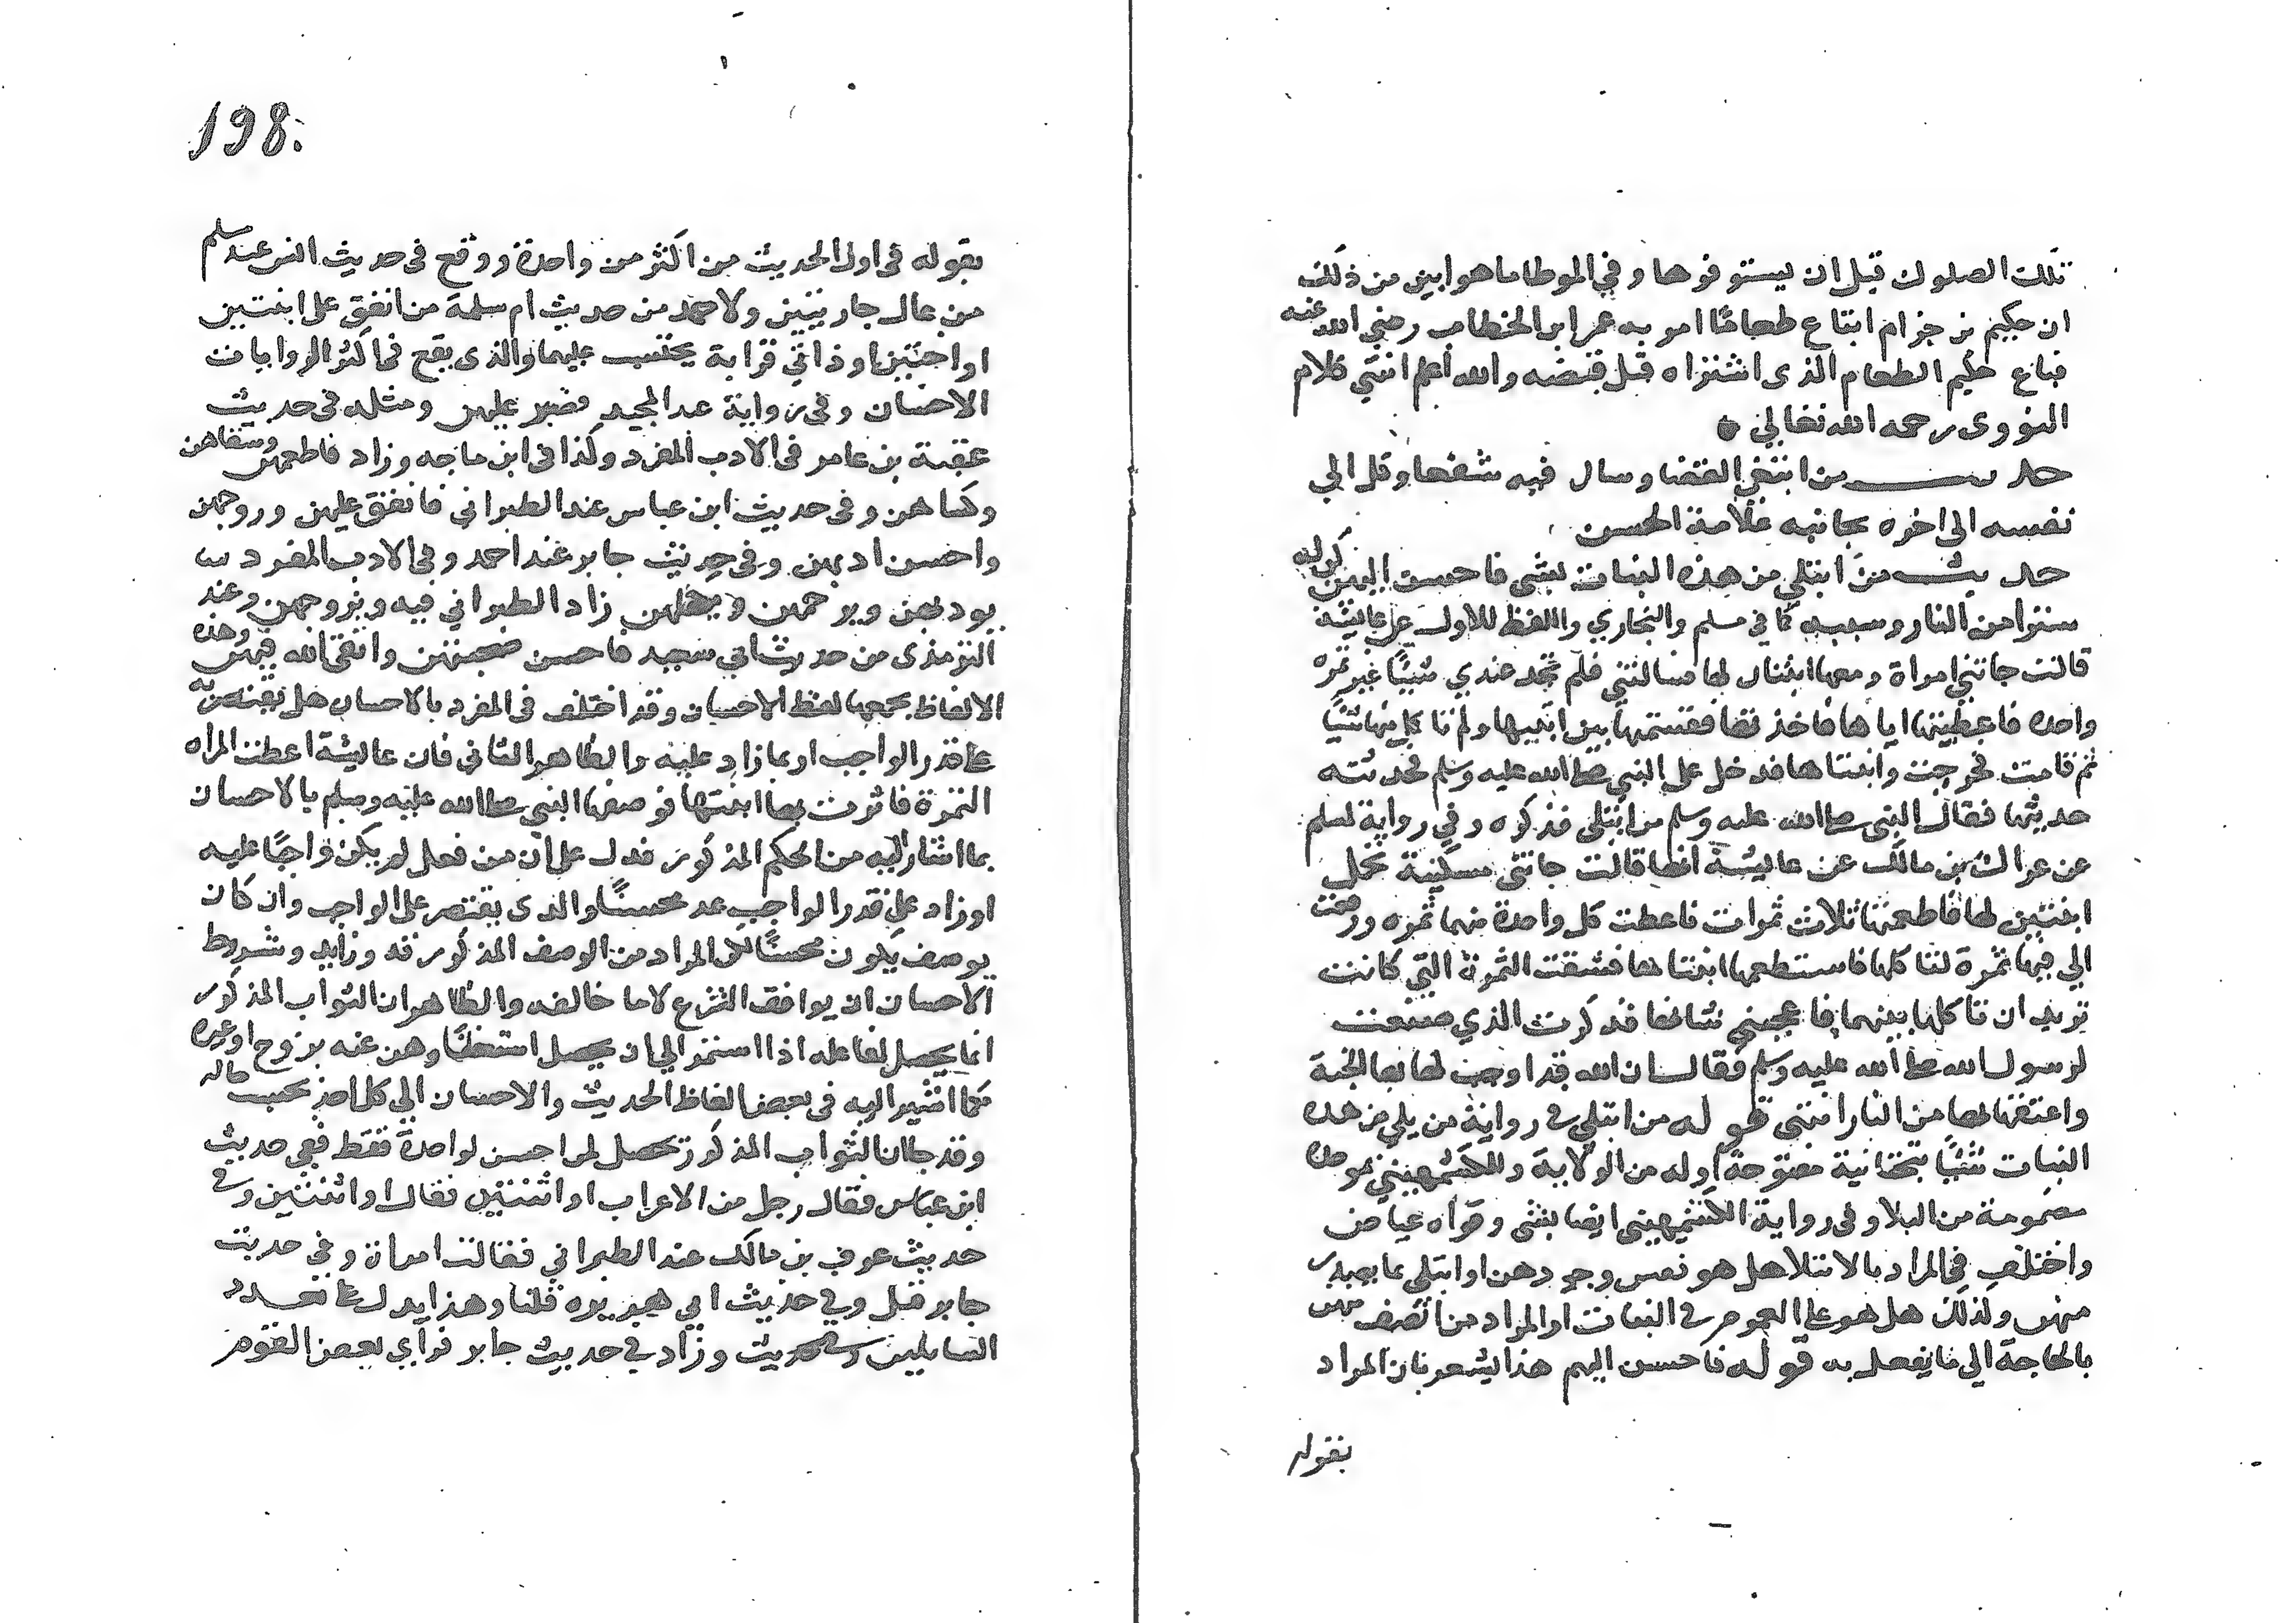 تلك الصلوك قبل ان يستوفوها وفي الموطا ما هو ابين من ذلك
ان حكيم بن حزام ابتاع طعاما امر به عمر ابن الخطاب رضي الله عنه
فباع حكيم الطعام الذي اشتراه قبل قبضه والله اعلم انتهي كلام
النووي رحمه الله تعالي
حديث من ابتغي القضا وسال فيه شفعا وكل الي
نفسه الي اخره بجانبه علامة الحسن
حديث من ابتلي من هذه البنات بشي فاحسن اليهن كن له
سترا من النار وسببه كما في مسلم والبخاري واللفظ للاول عن عايشة
قالت جاتني امراة ومعها ابنتان لها فسالتني فلم تجد عندي شيئا غير تمره
واحده فاعطيتها اياها فاخذتها فقسمتها بين ابنتيها ولم تاكل منها شيا
ثم قامت فخرجت وابنتاها فدخل علي النبي صلي الله عليه وسلم فحدثته
حديثها فقال النبي صلي الله عليه وسلم من ابتلي فذكره وفي رواية لمسلم
عن عراك بن مالك عن عايشة انها قالت جاتني مسكينة تحمل
ابنتين لها فاطعمتها ثلاث تمرات فاعطت كل واحدة منهما تمره ورفعت
الي فيها تمرة لتاكلها فاستطعمها ابنتاها فشقت التمرة التي كانت
تريد ان تاكلها بينهما فاعجبني شانها فذكرت الذي صنعت
لرسول الله صلي الله عليه وسلم فقال ان الله قد اوجب لها بها الجنة
واعتقها بها من النار انتهي قوله من ابتلي في رواية من يلي من هذه
البنات شيئا بتحتانية مفتوحة اوله من الولاية وللكشميهني بموحدة
مضمومة من البلا وفي رواية الكشميهني ايضا بشي وقواه عياض
واختلف في المراد بالابتلا هل هو نفس وجودهن او ابتلي بما يصدر
منهن ولذلك هل هو علي العموم في البنات او المراد من اتصف منهن
بالحاجة الي ما يفعل به قوله فاحسن اليهم هذا يشعر بان المراد
بقوله
198
بقوله في اول الحديث من اكثر من واحدة ووقع في حديث انس عند مسلم
من عال جاريتين ولاحمد من حديث ام سلمة من انفق علي ابنتين
او اختين او ذاتي قرابة يحتسب عليهما والذي يقع في اكثر الروايات
الاحسان وفي رواية عبد المجيد فصبر عليهن ومثله في حديث
عقبة بن عامر في الادب المفرد وكذا في ابن ماجه وزاد فاطعمهن وسقاهن
وكساهن وفي حديث ابن عباس عند الطبراني فانفق عليهن وزوجهن
واحسن ادبهن وفي حديث جابر عند احمد وفي الادب المفرد
يودبهن ويرحمهن ويكفلهن زاد الطبراني فيه ويزوجهن وعند
الترمذي من حديث ابي سعيد فاحسن صحبتهن واتقي الله فيهن وهذه
الالفاظ يجمعها لفظ الاحسان وقد اختلف في المفرد بالاحسان هل يقتصر به
علي قدر الواجب او بما زاد عليه والظاهر الثاني فان عايشة اعطت المراه
التمرة فاثرت بها ابنتها فوصفها النبي صلي الله عليه وسلم بالاحسان
بما اشار اليه من الحكم المذكور فدل علي ان من فعل لم يكن واجبا عليه
او زاد علي قدر الواجب عد محسنا والذي يقتصر علي الواجب وان كان
يوصف بكون محسنا لكن المراد من الوصف المذكور قدر زايد وشروط
الاحسان ان يوافق الشرع لا ما خالفه والظاهر ان الثواب المذكور
انما يحصل لفاعله اذا استمر الي ان يحصل استغناوهن عنه بزوج او غيره
كما اشير اليه في بعض الفاظ الحديث والاحسان الي كل احد بحسب حاله
وقد جا ان الثواب المذكور تحصل لمن احسن لواحدة فقط ففي حديث
ابن عباس فقال رجل من الاعراب او اثنتين فقال او اثنتين وفي
حديث عوف بن مالك عند الطبراني فقالت امراة وفي حديث
جابر قيل وفي حديث ابي هريره قلنا وهذا يدل علي تعدد
السايلين وزاد في حديث جابر فراي بعض القوم